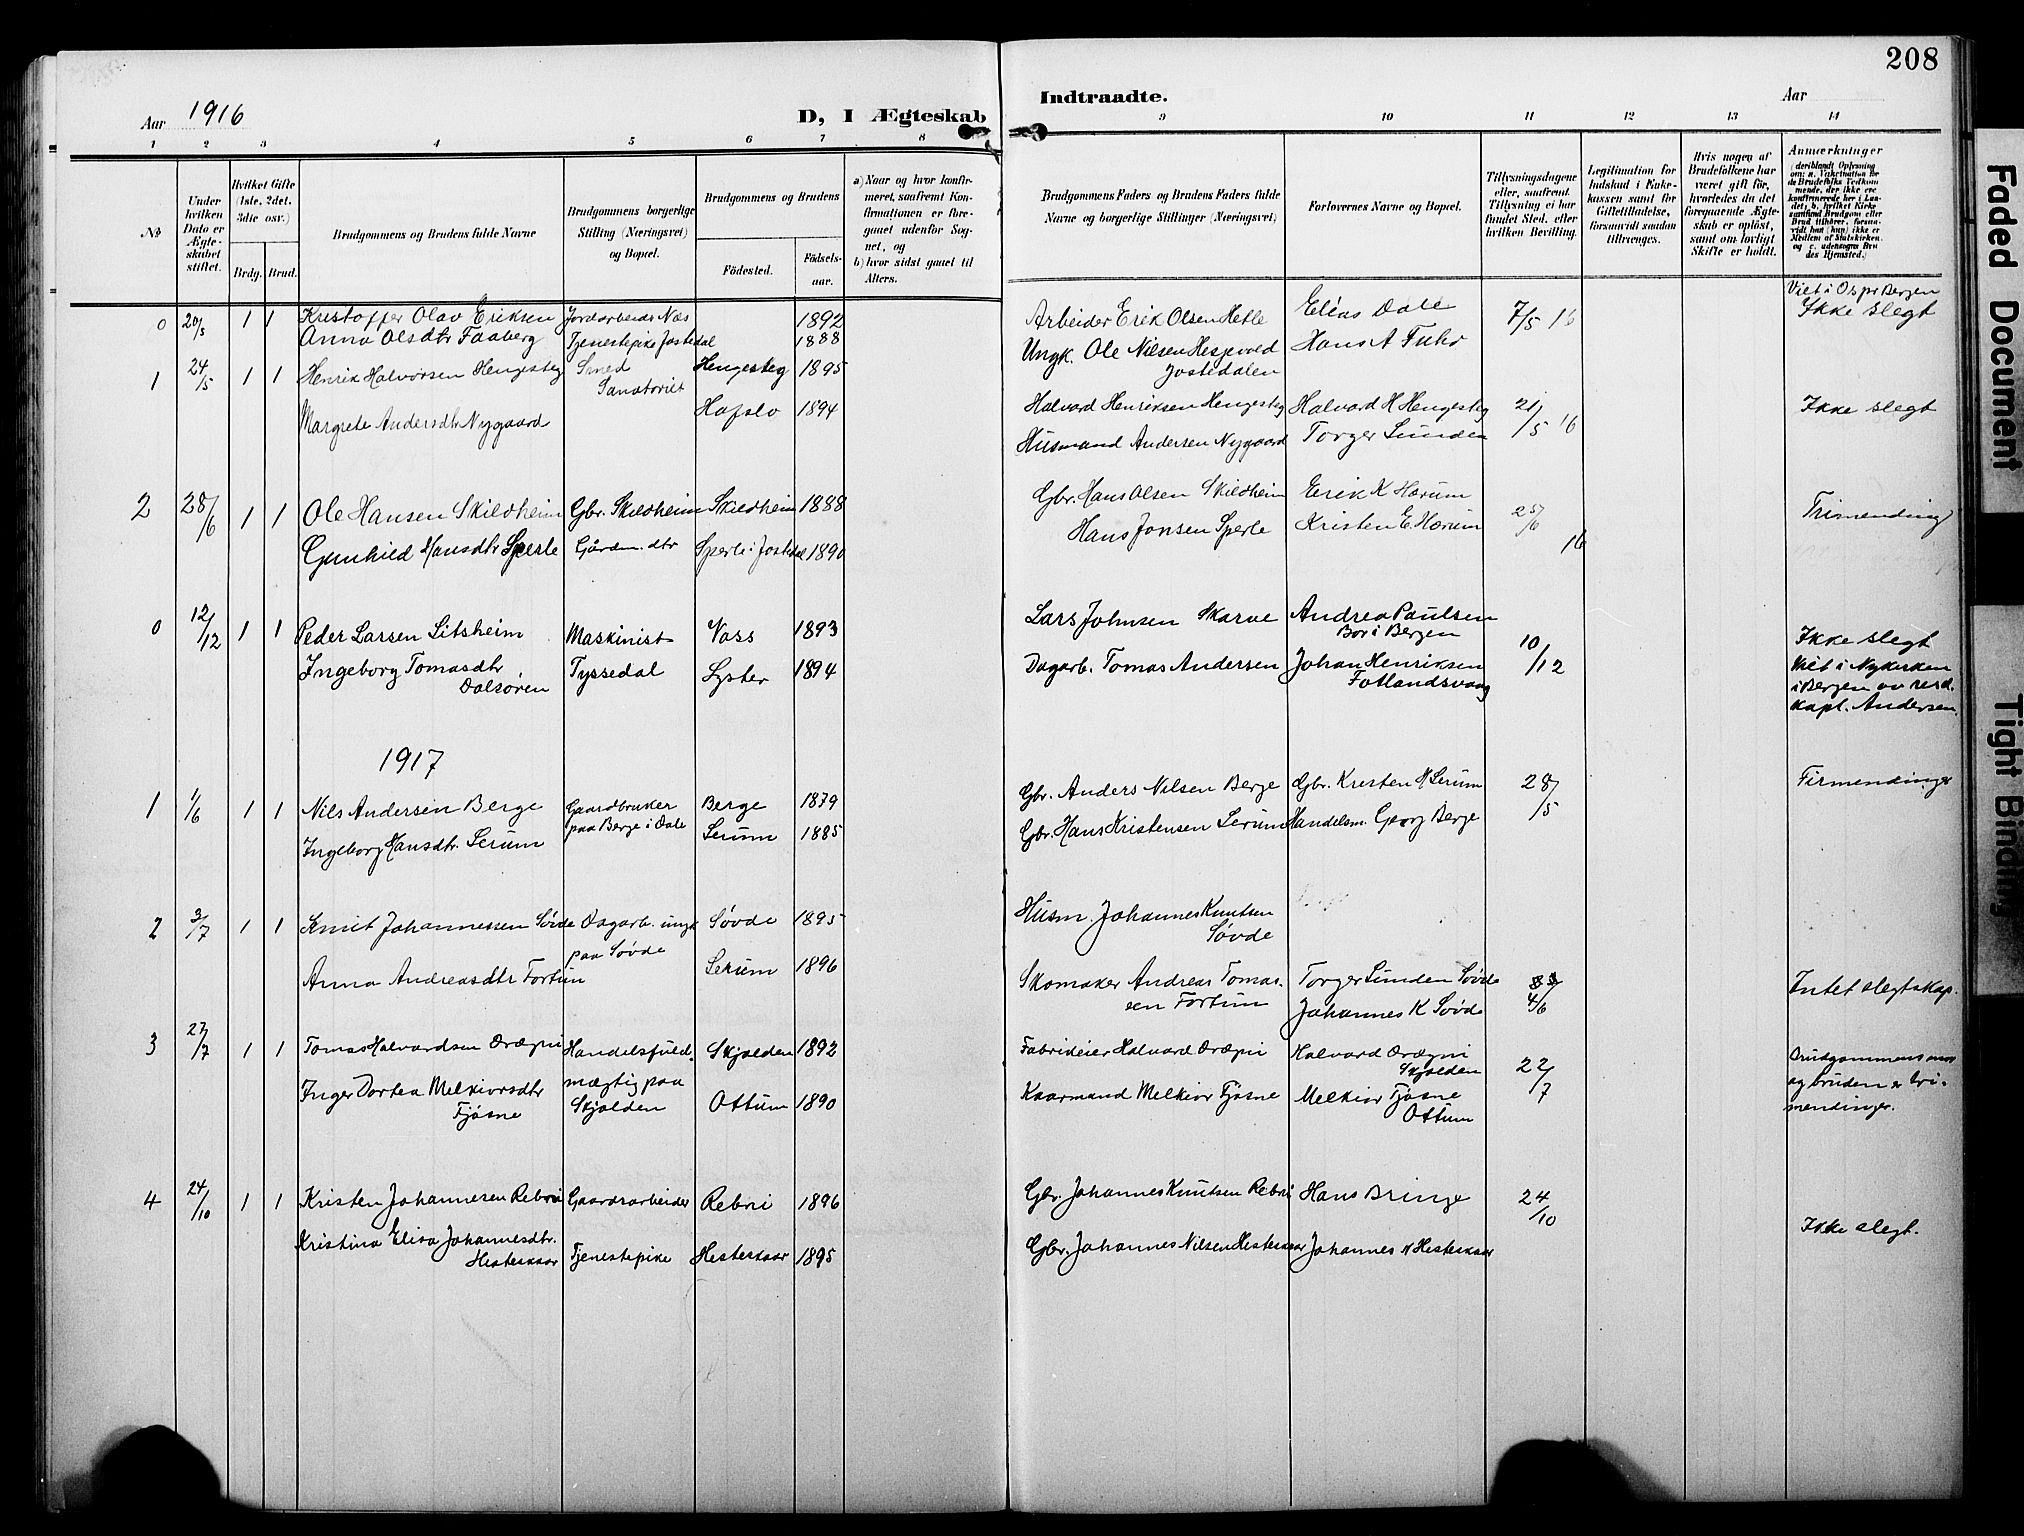 208
Aar 1916
D, I Ægteskab
Indtraadte.
Aar
1 2 3 4 5 6 7 8 9 10 11 12 13 14
№
Under hvilken Dato er Ægteskabet stiftet.
Hvilket Gifte (1ste, 2det, 3die osv.)
Brdg. Brud.
Brudgommens og Brudens fulde Navne
Brudgommens borgerlige Stilling (Næringsvei) og Bopæl.
Brudgommens og Brudens
Födested.
Födsels-aar.
a) Naar og hvor konfirmeret, saafremt Konfirmationen er foregaaet udenfor Sognet, og
b) hvor sidst gaaet til Alters.
Brudgommens Faders og Brudens Faders fulde Navne og borgerlige Stillinger (Næringsvei)
Forlovernes Navne og Bopæl.
Tillysningsdagene eller, saafremt Tillysning ei har fundet Sted, efter hvilken Bevilling.
Legitimation for Indskud i Enkekassen samt for Giftetilladelse, forsaavidt saadan tiltrænges.
Hvis nogen af Brudefolkene har været gift för, hvorledes da det foregaaende Ægteskab er oplöst, samt om lovligt Skifte er holdt.
Anmærkninger
(deriblandt Oplysning om: a. Vakcination for de Brudefolks Vedkommende, der ikke ere konfirmerede her i Landet, b. hvilket Kirkesamfund Brudgom eller Brud tilhörer, forsaavidt han (hun) ikke er Medlem af Statskirken, og c. udensogns Brudes Hjemsted.)
0 20/5 1 1 Kristoffer Olav Eriksen Jordarbeider Næs 1892 Arbeider Erik Olsen Hetle Elias Dale 7/5 16 Viet i Bergen
Anna Olsdtr Faaberg Tjenestepike Jostedal 1888 Ungk. Ole Nilsen Hans A Fuhr Ikke slegt
Jostedalen
1 24/5 1 1 Henrik Halvorsen Hengesteg Smed Hengesteg 1895 Halvard Henriksen Hengesteg Halvard H Hengesteg 21/5 16 Ikke slegt
Sanatoriet
Margrete Andersdtr Nygaard Hafslo 1894 Husmand Andersen Nygaard Torger Sunden
2 28/6 1 1 Ole Hansen Skildheim Gbr. Skildheim Skildheim 1888 Gbr. Hans Olsen Skildheim Erik K Hærum 25/6 16 Trimending
Gunhild Hansdtr Sperle Gårdm. dtr Sperle i Jostedal 1890 Hans Jonsen Sperle Kristen E. Hærum
0 12/12 1 1 Peder Larsen Litsheim Maskinist Voss 1893 Lars Johnsen Skarve Andrea Paulsen 10/12 Ikke slegt
Bor i Bergen
Ingeborg Tomasdtr Tyssedal Lyster 1894 Dagarb. Tomas Andersen Johan Henriksen Viet i Nykirken
Dalsøren Fotlandsvaag i Bergen av resd.
kapl. Andersen.
1917
1 1/6 1 1 Nils Andersen Berge Gaardbruker Berge 1879 Gbr. Anders Nilsen Berge Gbr. Kristen H Serum 28/5 Firmendinger
paa Berge i Dale
Ingeborg Hansdtr. Serum Serum 1885 Gbr. Hans Kristensen Serum Handelsm. Georg Berge
2 3/7 1 1 Knut Johannessen Søvde Dagarb. ungk Søvde 1895 Husm. Johannes Knutsen
paa Søvde Søvde
Anna Andreasdtr Fortun Serum 1896 Skomaker Andreas Tomas- Torger Sunden Søvde Intet slegtskap.
sen Fortun Johannes K Søvde 4/6
3 27/7 1 1 Tomas Halvardsen Drægni Handelsfuld- Skjolden 1892 Fabrikeier Halvard Drægni Halvard Drægni 22/7 Brudgommens mor
mægtig paa Skjolden og bruden er tri-
Inger Dortea Melkiorsdtr Skjolden Ottum 1890 Kaarmand Melkior Fjøsne Melkior Fjøsne mendinger.
Fjøsne Ottum
4 24/10 1 1 Kristen Johannesen Rebni Gaardsarbeider Rebni 1896 Gbr. Johannes Knutsen Rebni Hans Bringe 24/10
Kristina Elisa Johannesdtr. Ikke slegt.
Hesteskaar Tjenestepike Hesteskaar 1895 Gbr. Johannes Nilsen Hesteskaar Johannes N Hesteskaar
Faded Document
Tight Binding